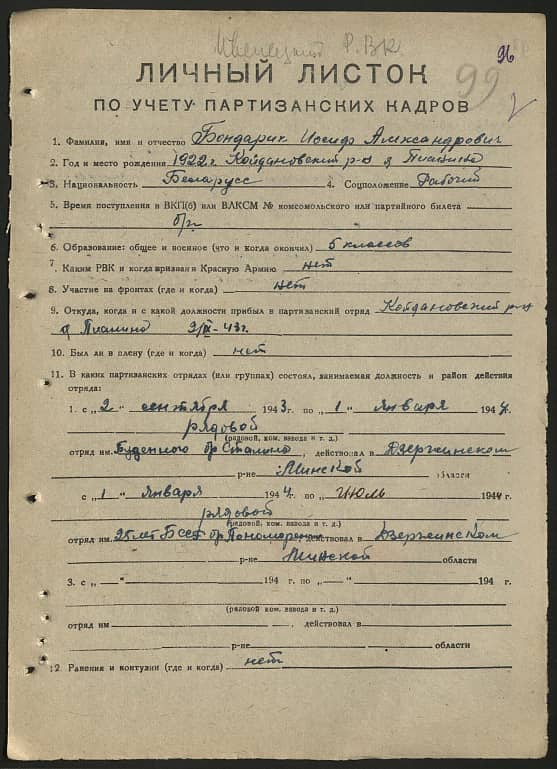 Ивенецкий Р.В.К.
96
99
ЛИЧНЫЙ ЛИСТОК
ПО УЧЕТУ ПАРТИЗАНСКИХ КАДРОВ
1. Фамилия, имя и отчество Бондарик Иосиф Александрович
2. Год и место рождения 1922 г. Койдановский р-н д
3. Национальность Беларусс 4. Соцположение Рабочий
5. Время поступления в ВКП(б) или ВЛКСМ № комсомольского или партийного билета
б/п
6. Образование: общее и военное (что и когда окончил) 5 классов
7. Каким РВК и когда призван в Красную Армию нет
8. Участие на фронтах (где и когда) нет
9. Откуда, когда и с какой должности прибыл в партизанский отряд Койдановский р-н
д 2/IX-43 г.
10. Был ли в плену (где и когда) нет
11. В каких партизанских отрядах (или группах) состоял, занимаемая должность и район действия
отряда:
1. с „2" сентября 1943 г. по „1" января 1944 г.
рядовой
(рядовой, ком. взвода и т. д.)
отряд им. Буденного бр Сталина, действовал в Дзержинском
р-не Минской области
с „1" января 1944 г. по „ " Июль 1944 г.
рядовой
(рядовой, ком. взвода и т. д.)
отряд им. 25 лет БССР бр Пономаренко действовал в Дзержинском
р-не Минской области
3. с „—"  194 г. по „—"  194 г.
(рядовой ком. взвода и т. д.)
отряд им , действовал в
р-не области
12. Ранения и контузии (где и когда) нет